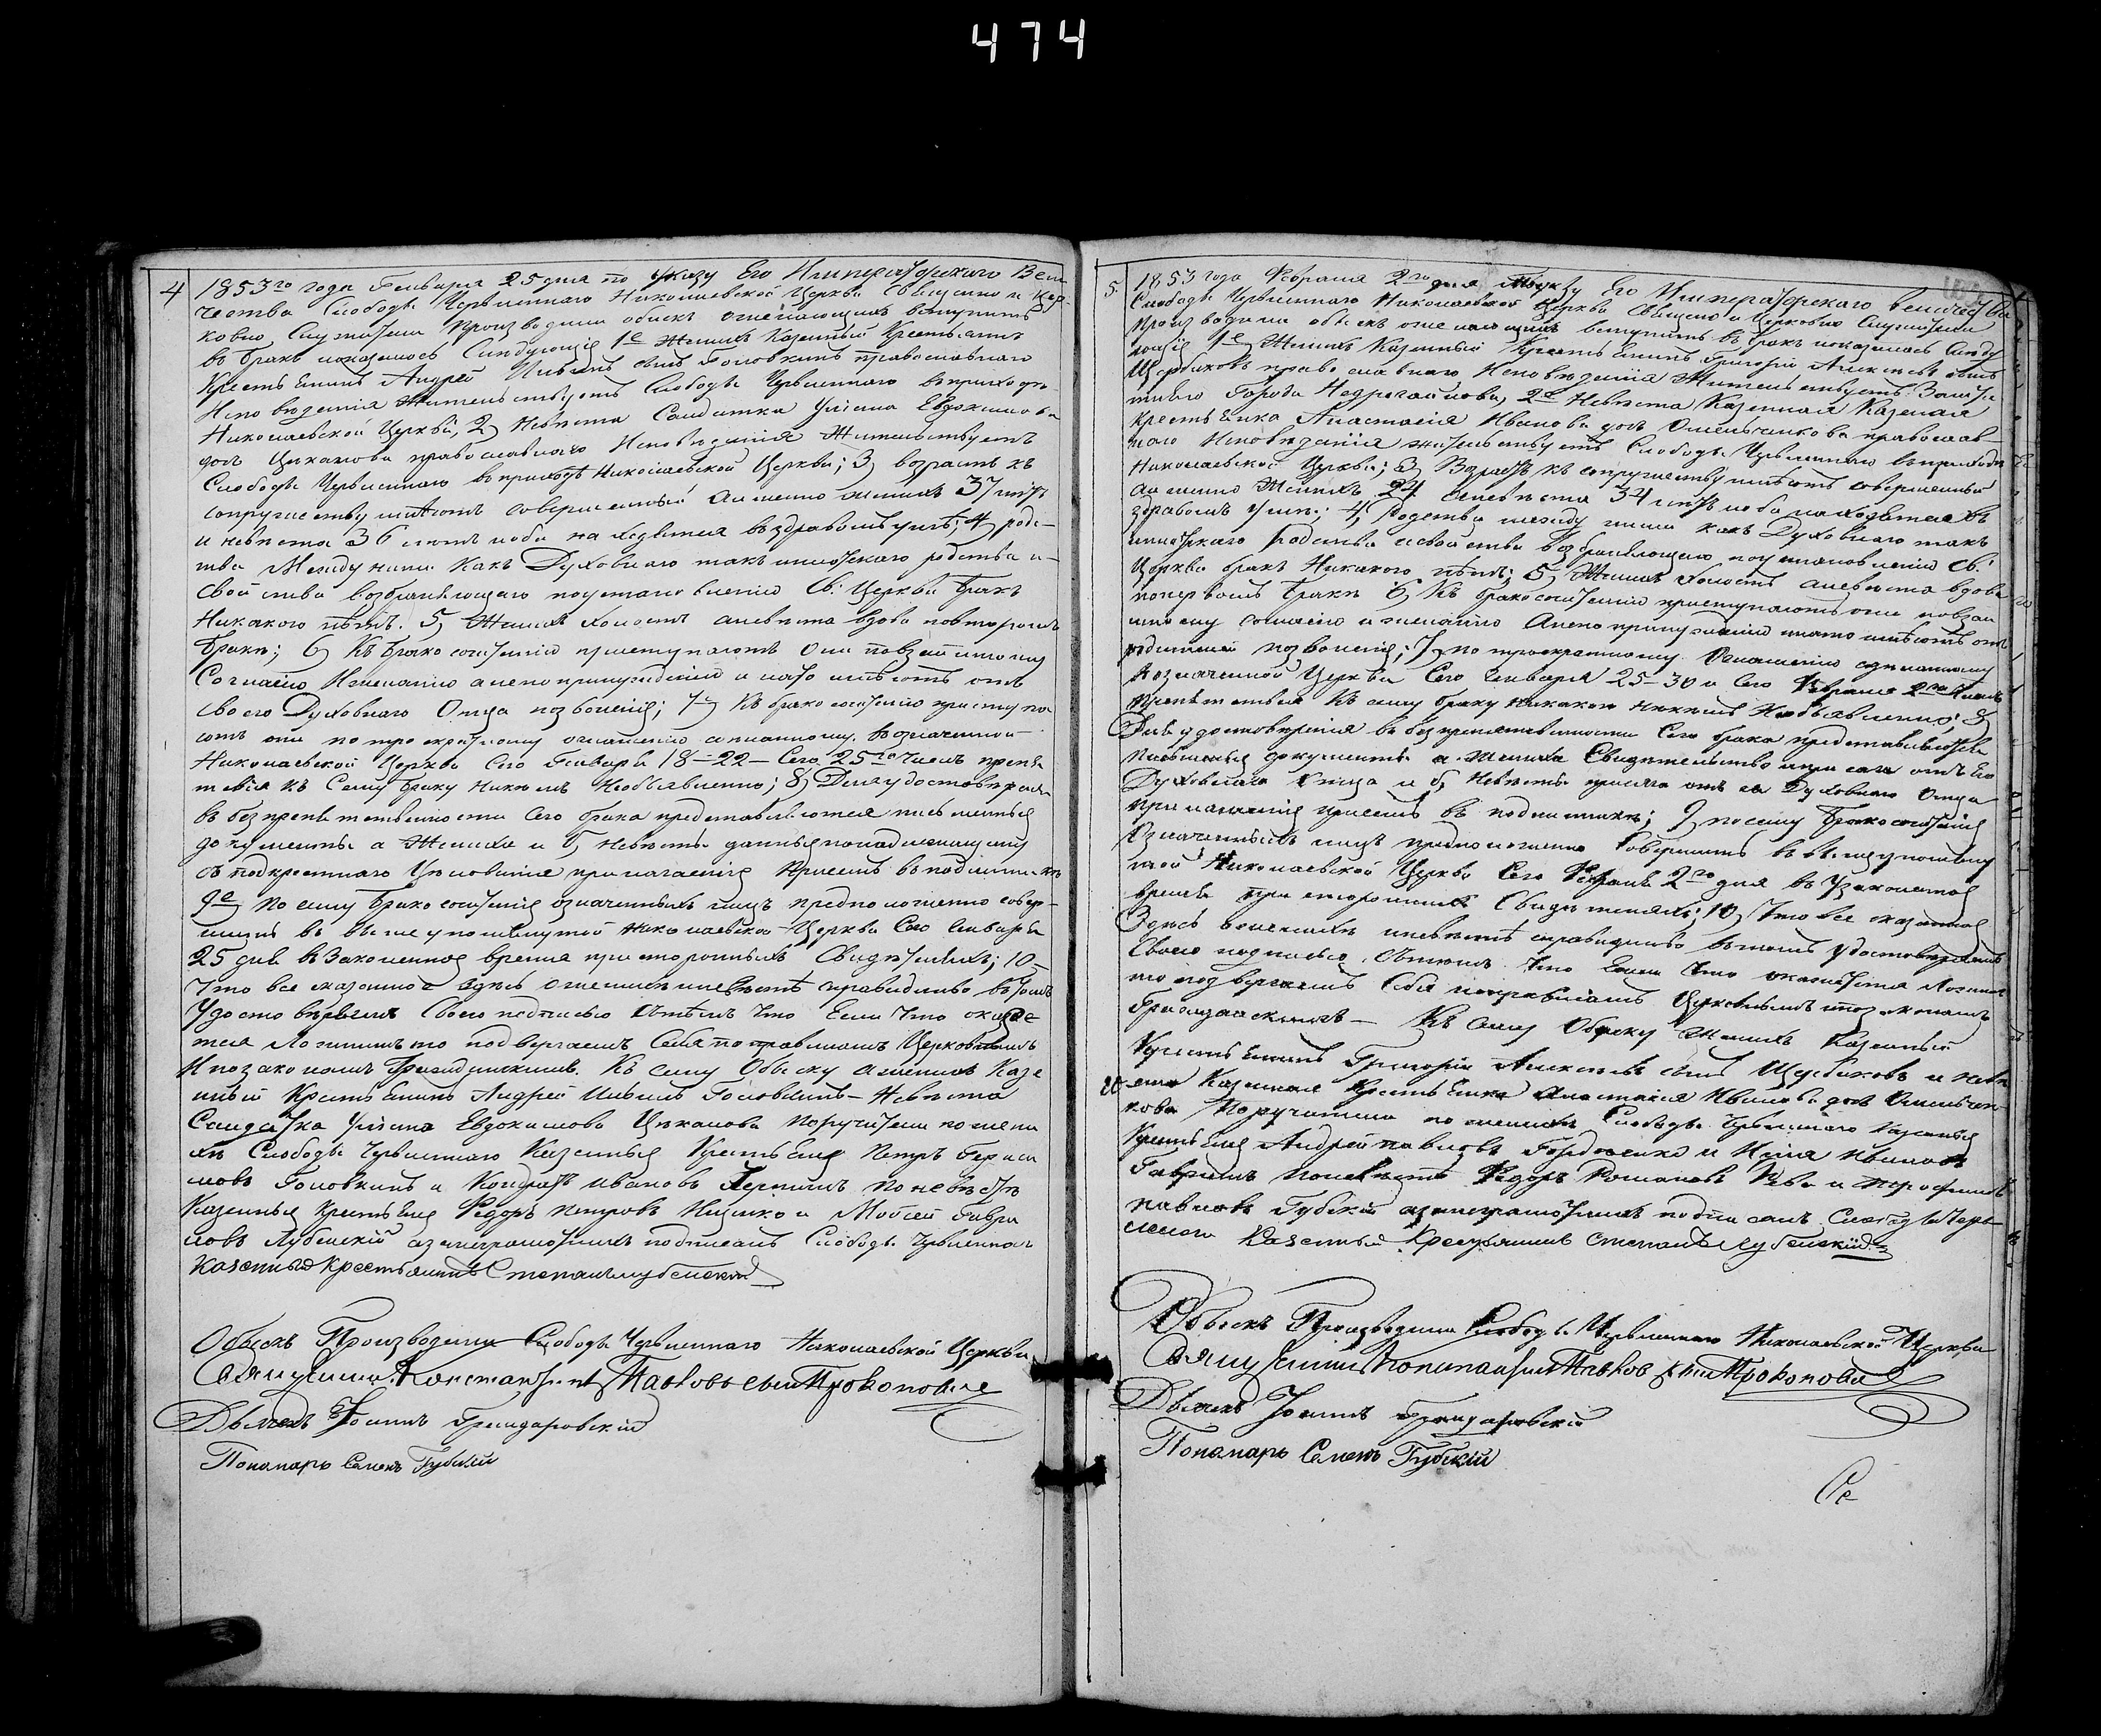 474
4
1853го года Генваря 25 дня по указу Его Императорскаго Вели
чества Слободы Червленнаго Николаевской Церкви Священно и Цер-
ковно Служители Производили обыскъ о желающихъ вступить
въ бракъ и оказалось Следующее 1е Женихъ Казенный Крестьянинъ
Крестьянинъ Андрей Ивановъ сынъ Головкинъ православнаго
Исповедания Жительствуетъ Слободы Червленнаго въ приходе
Николаевской Церкви, 2) Невеста Солдатка Улияна Евдокимова
дочь Цыканова православнаго Исповедания Жительствуетъ
Слободы Червленнаго въ приходе Николаевской Церкви; 3) возрастъ къ
супружеству имеютъ совершенный а именно женихъ 37 летъ
и невеста 36 летъ и оба находятся въ здравомъ уме; 4) родс-
тва Между ними Какъ Духовнаго такъ и плотскаго родства и
Свойства возбраняющаго по установлению Св: Церкви бракъ
Никакого нетъ. 5) Женихъ холостъ а невеста вдова по второмъ
браке; 6) Къ бракосочетанию приступаютъ Они по взаимному
Согласию И желанию а не по принуждению и на то имеютъ отъ
своего Духовнаго Отца позволение; 7е) Къ бракосочетанию приступа
ютъ они по троекратному оглашению сделанному въ означенной
Николаевской Церкви Сего Генваря 18-22- Сего 25го Числъ препя
тствия къ Сему браку никемъ Необъявленно; 8) Для удостоверения
въ безпрепятственности Сего брака представляются письменные
документы а Жениха и б) невесты данные по надлежащему
съ подкрестнаго Целования прилагаемые Присемъ въ подлиннике
9е) По сему бракосочетание означенныхъ лицъ предположенно совер-
шить въ вышеупомянутой Николаевской Церкви Сего Генваря
25 дня въ Законенное время при стороннихъ Свидетеляхъ; 10-
Что все показанное здесь о женихе и невесте справедливо въ томъ
Удостоверяемъ Своею подписью съ темъ что Если Что окаже
тся Ложнымъ то подвергаемъ Себя по правиламъ Церковнымъ
И по законамъ Гражданскимъ. Къ сему Обыску Женихъ Казе
нный Крестьянинъ Андрей Ивановъ Головкинъ- Невеста
Солдатка Улияна Евдокимова Цыканова Поручители по жени
хе Слободы Червленнаго Казенные Крестьяне Петръ Гераси
мовъ Головкинъ и Кондратъ Ивановъ По невесте
Казенные Крестьяне Федоръ Петровъ и Мойсей Гаври
ловъ Лубенский а за неграмотныхъ подписалъ Слободы Червленнаго
Казенный Крестьянинъ Степанъ Лубенский
Обыскъ Производили Слободы Червленнаго Николаевской Церкви
Священникъ Константинъ Павловъ сынъ Прокоповичъ
Дьячекъ Иоаннъ
Пономарь Семенъ Губский
5.
1853 года Февраля 2го дня по Указу Его Императорскаго Величества
Слободы Червленнаго Николаевской Церкви Священно и Церковно Служители
Производили обыскъ о желающихъ вступить въ бракъ и оказалось Следу
ющее 1е) Женихъ Казенный Крестьянинъ Григорий Алексеевъ сынъ
Щербаковъ православнаго Исповедания Жительствуетъ Зашта
тнаго Города Недрогайлова, 2е Невеста Казенная Казеная
Крестьянка Анастасия Иванова дочь Омельченкова православ-
наго Исповедания жительствуетъ Слободы Червленнаго въ приходе
Николаевской Церкви; 3) Возрастъ къ супружеству имеютъ совершенный
а именно Женихъ 24 а невеста 34 летъ и оба находятся въ
здравомъ уме; 4) Родства между ними какъ Духовнаго такъ
и плотскаго родства и свойства возбраняющаго по установлению Св:
Церкви бракъ Никакого нетъ; 5) Женихъ холостъ а невеста вдова
по первомъ браке 6) Къ бракосочетанию приступаютъ они по взаи
мному согласию и желанию А не по принуждению и на то имеютъ отъ
родителей позволение; 7) по троекратному Оглашению сделанному
въ означенной Церкви Сего Генваря 25-30 и Сего Февраля 2го Числъ
Препятствия Къ сему браку никакого никемъ Необъявленно; 8)
Для удостоверения въ безпрепятственности Сего брака представляются
Письменные документы а Жениха Свидетельство отъ Его
Духовнаго Отца и б) Невесты отъ ея Духовнаго Отца
Прилагаемые присемъ въ подлиннике; 9) по сему бракосочетание
Означенныхъ лицъ предположенно Совершить въ вышеупомяну
той Николаевской Церкви Сего Февраля 2го дня въ Узаконенное
время при стороннихъ Свидетеляхъ; 10) Что все показанное
Здесь о женихе и невесте справедливо въ томъ Удостоверяемъ
Своею подписью съ темъ что Если Что окажется Ложнымъ
то подвергаемъ Себя по правиламъ Церковнымъ и по законамъ
Гражданскимъ- Къ сему Обыску Женихъ Казенный
Крестьянинъ Григорий Алексеевъ сынъ Щербаковъ и Неве
ста Казенная Крестьянка Анастасия Иванова дочь Омельчен-
кова Поручители по женихе Слободы Червленнаго Казенные
Крестьяне Андрей Павловъ Гордиенко и Илия Ивановъ
По невесте Федоръ Романовъ Рева и Трофимъ
Павловъ Губский а за неграмотныхъ подписалъ Слободы Черв-
леннаго Казенный Крестьянинъ Степанъ Лубенский
Обыскъ Производили Слободы Червленнаго Николаевской Церкви
Священникъ Константинъ Павловъ сынъ Прокоповичъ
Дьячекъ Иоаннъ
Пономарь Семенъ Губский
Се